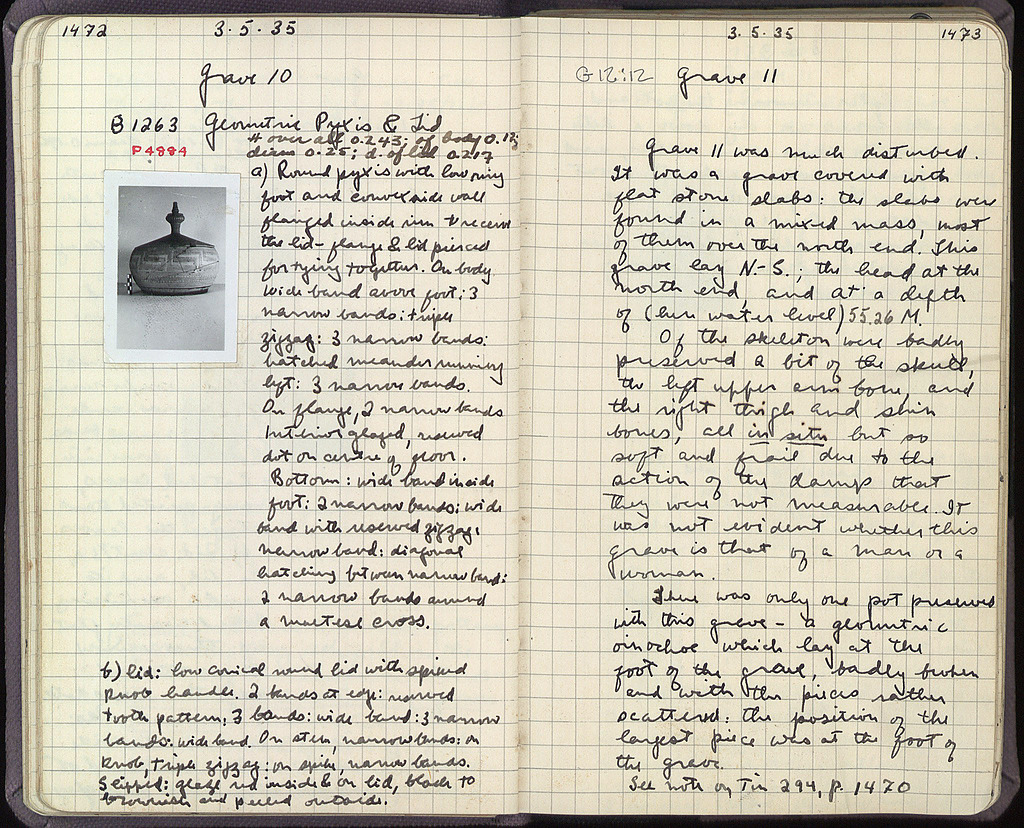 1472
3·5·35
Grave 10
B 1263 Geometric Pyxis & Lid
P4884
H over all 0.243; of body 0.12;
diam 0.25; d. of lid 0.217
a) Round pyxis with low ring
foot and convex side wall
flanged inside rim to receive
the lid - flange & lid pierced
for tying together. On body
wide band above foot: 3
narrow bands: triple
zigzag: 3 narrow bands:
hatched meander running
left: 3 narrow bands.
On flange, 2 narrow bands
Interior glazed, reserved
dot on centre of floor.
Bottom: wide band inside
foot: 2 narrow bands: wide
band with reserved zigzag:
narrow band: diagonal
hatching between narrow band:
2 narrow bands around
a maltese cross.
b) Lid: low conical round lid with spired
knob handle. 2 bands at edge: reserved
tooth pattern: 3 bands: wide band: 3 narrow
bands: wide band. On stem, narrow bands: on
knob, triple zigzag: on spike, narrow bands.
Slipped: glaze red inside & on lid, black to
brownish and peeled outside.
3·5·35
1473
G12:12 Grave 11
Grave 11 was much disturbed.
It was a grave covered with
flat stone slabs: the slabs were
found in a mixed mass, most
of them over the north end. This
grave lay N-S.; the head at the
north end, and at a depth
of (here water level) 55.26 M.
Of the skeleton were badly
preserved a bit of the skull,
the left upper arm bone, and
the right thigh and shin
bones, all in situ but so
soft and frail due to the
action of the damp that
they were not measurable. It
was not evident whether this
grave is that of a man or a
woman.
There was only one pot preserved
with this grave - a geometric
oinochoe which lay at the
foot of the grave, badly broken
and with the pieces rather
scattered: the position of the
largest piece was at the foot of
the grave.
See note on Tin 294, p. 1470